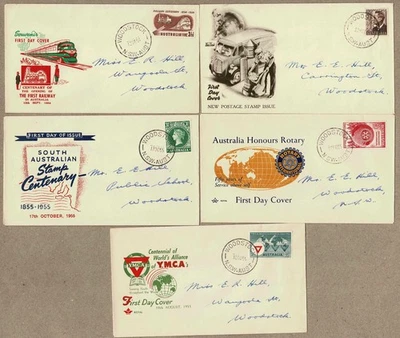 Souvenir
FIRST DAY COVER
CENTENARY
OF THE OPENING OF
THE FIRST RAILWAY
IN AUSTRALIA
AUSTRALIA
3½
WOODSTOCK
N.S.W-AUST
Miss E. R. Hill,
Woodstock
First
Day
Cover
NEW POSTAGE STAMP ISSUE
Mr. E. E. Hill,
Carrington St,
Woodstock
FIRST DAY OF ISSUE
SOUTH
AUSTRALIAN
Stamp
Centenary
1855-1955
17TH OCTOBER, 1955
WOODSTOCK
N.S.W-AUST
Mr. E. E. Hill
Public School,
Woodstock
Australia Honours Rotary
Service above self
First Day Cover
WOODSTOCK
N.S.W-AUST
Mr. E. E. Hill,
Woodstock,
N.S.W.
Centennial of
World's Alliance
of Y.M.C.A's
YMCA
First Day Cover
WOODSTOCK
N.S.W-AUST
AUSTRALIA
Miss E. R. Hill,
Woodstock